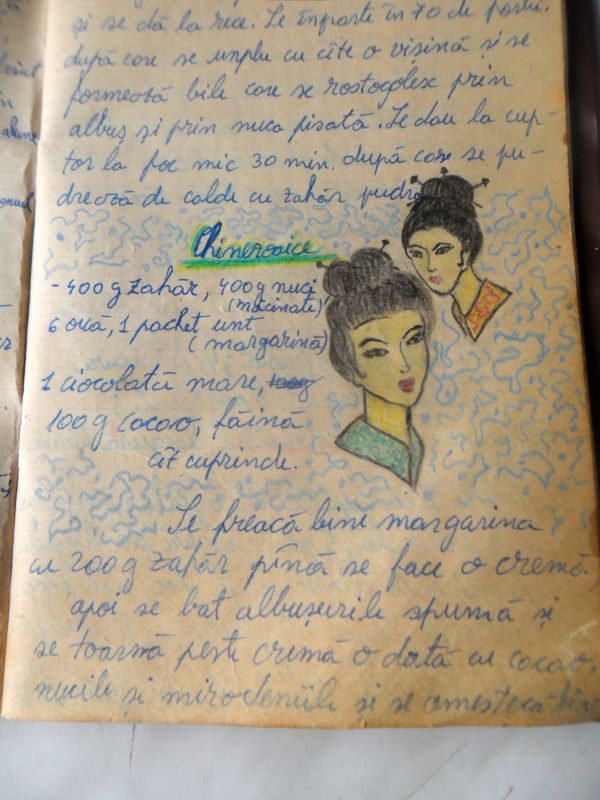 și se dă la rece. Se împarte în 70 de porții.
după care se umplu cu cîte o vișină și se
formează bile care se rostogolesc prin
albuș și prin nuca pisată. Se dau la cup-
tor la foc mic 30 min. după care se pu-
drează de calde cu zahăr pudră
Chinezoaice
- 400 g zahăr, 400 g nuci
(măcinate)
6 ouă, 1 pachet unt
(margarină)
1 ciocolată mare, 100g
100 g cacao, făină
cît cuprinde.
Se freacă bine margarina
cu 200 g zahăr pînă se face o cremă
apoi se bat albușurile spumă și
se toarnă peste cremă o dată cu cacao,
nucile și mirodeniile și se amestecă bine